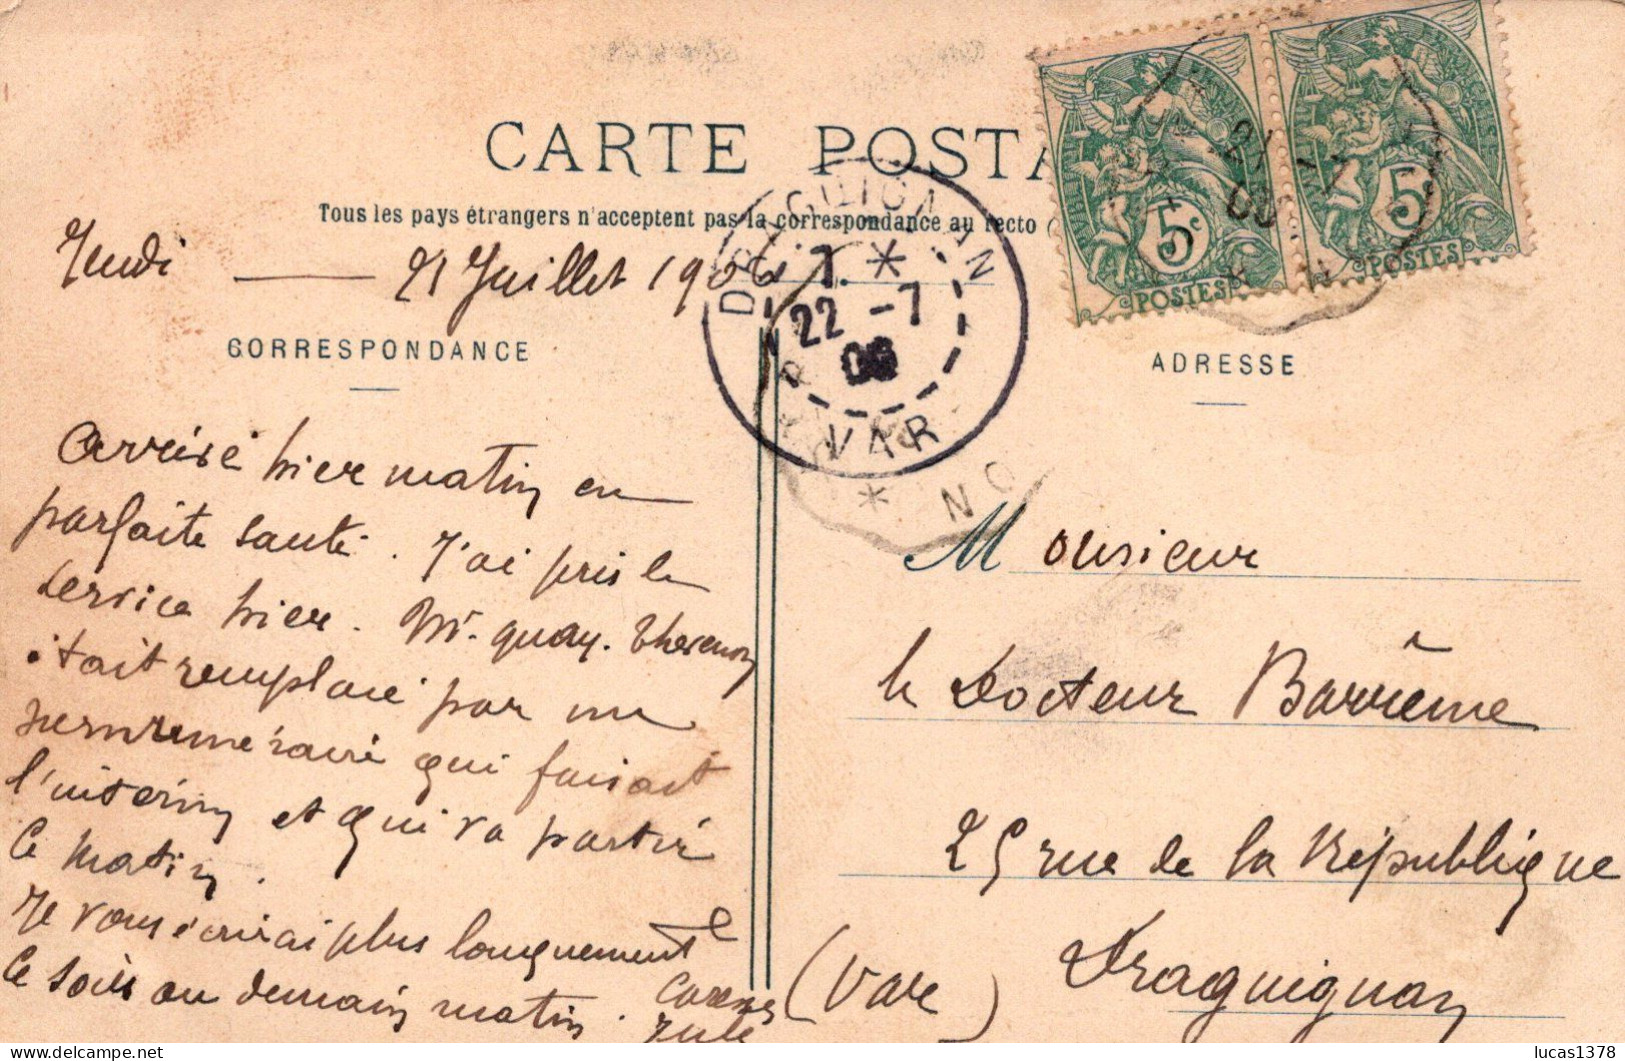 CARTE POSTA
Tous les pays étrangers n'acceptent pas la correspondance au recto (
Jeudi — 21 Juillet 1906
CORRESPONDANCE
Arrivé hier matin en
parfaite santé. J'ai pris le
service hier. Mr. quay. Thevenon
était remplacé par un
surnuméraire qui faisait
l'intérim et qui va partir
ce matin.
Je vous écrirai plus longuement
ce soir ou demain matin.
Jules
DRAGUIGNAN
22 -7
06
VAR
5c
POSTES
5c
POSTES
21
ADRESSE
Monsieur
le Docteur Barrême
25 rue de la République
Draguignan
(Var)
lucas1378